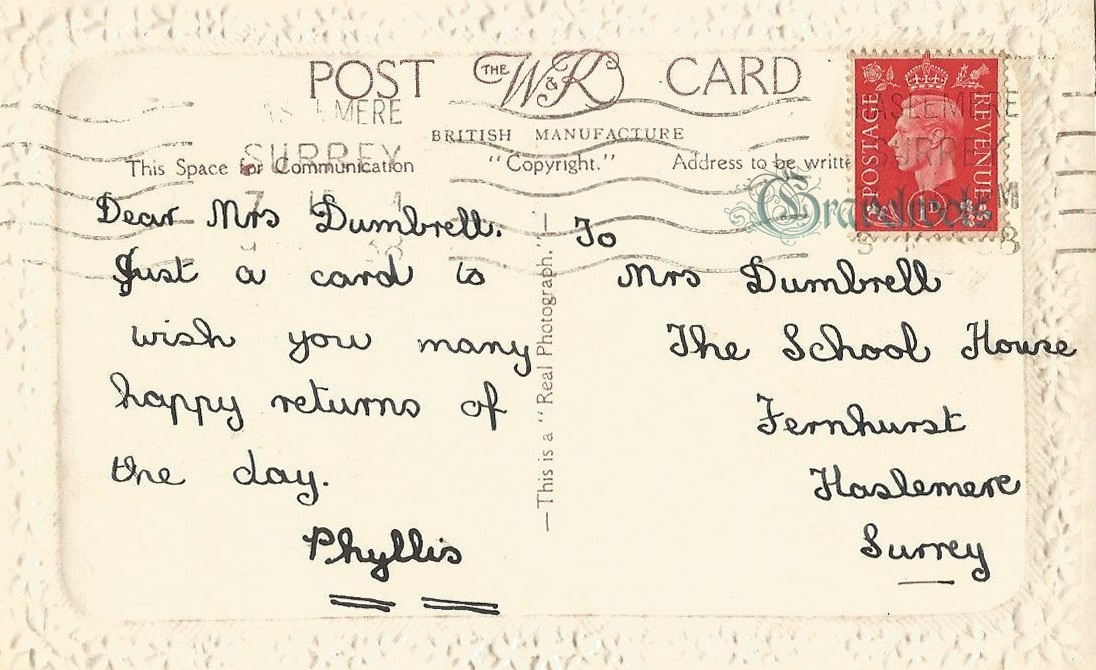 POST THE W&K CARD
BRITISH MANUFACTURE
This Space for Communication "Copyright." Address to be writte
HASLEMERE
SURREY
POSTAGE REVENUE
1D
—This is a "Real Photograph."—
Dear Mrs Dumbrell.
Just a card to
wish you many
happy returns of
the day.
Phyllis
To
Mrs Dumbrell
The School House
Fernhurst
Haslemere
Surrey